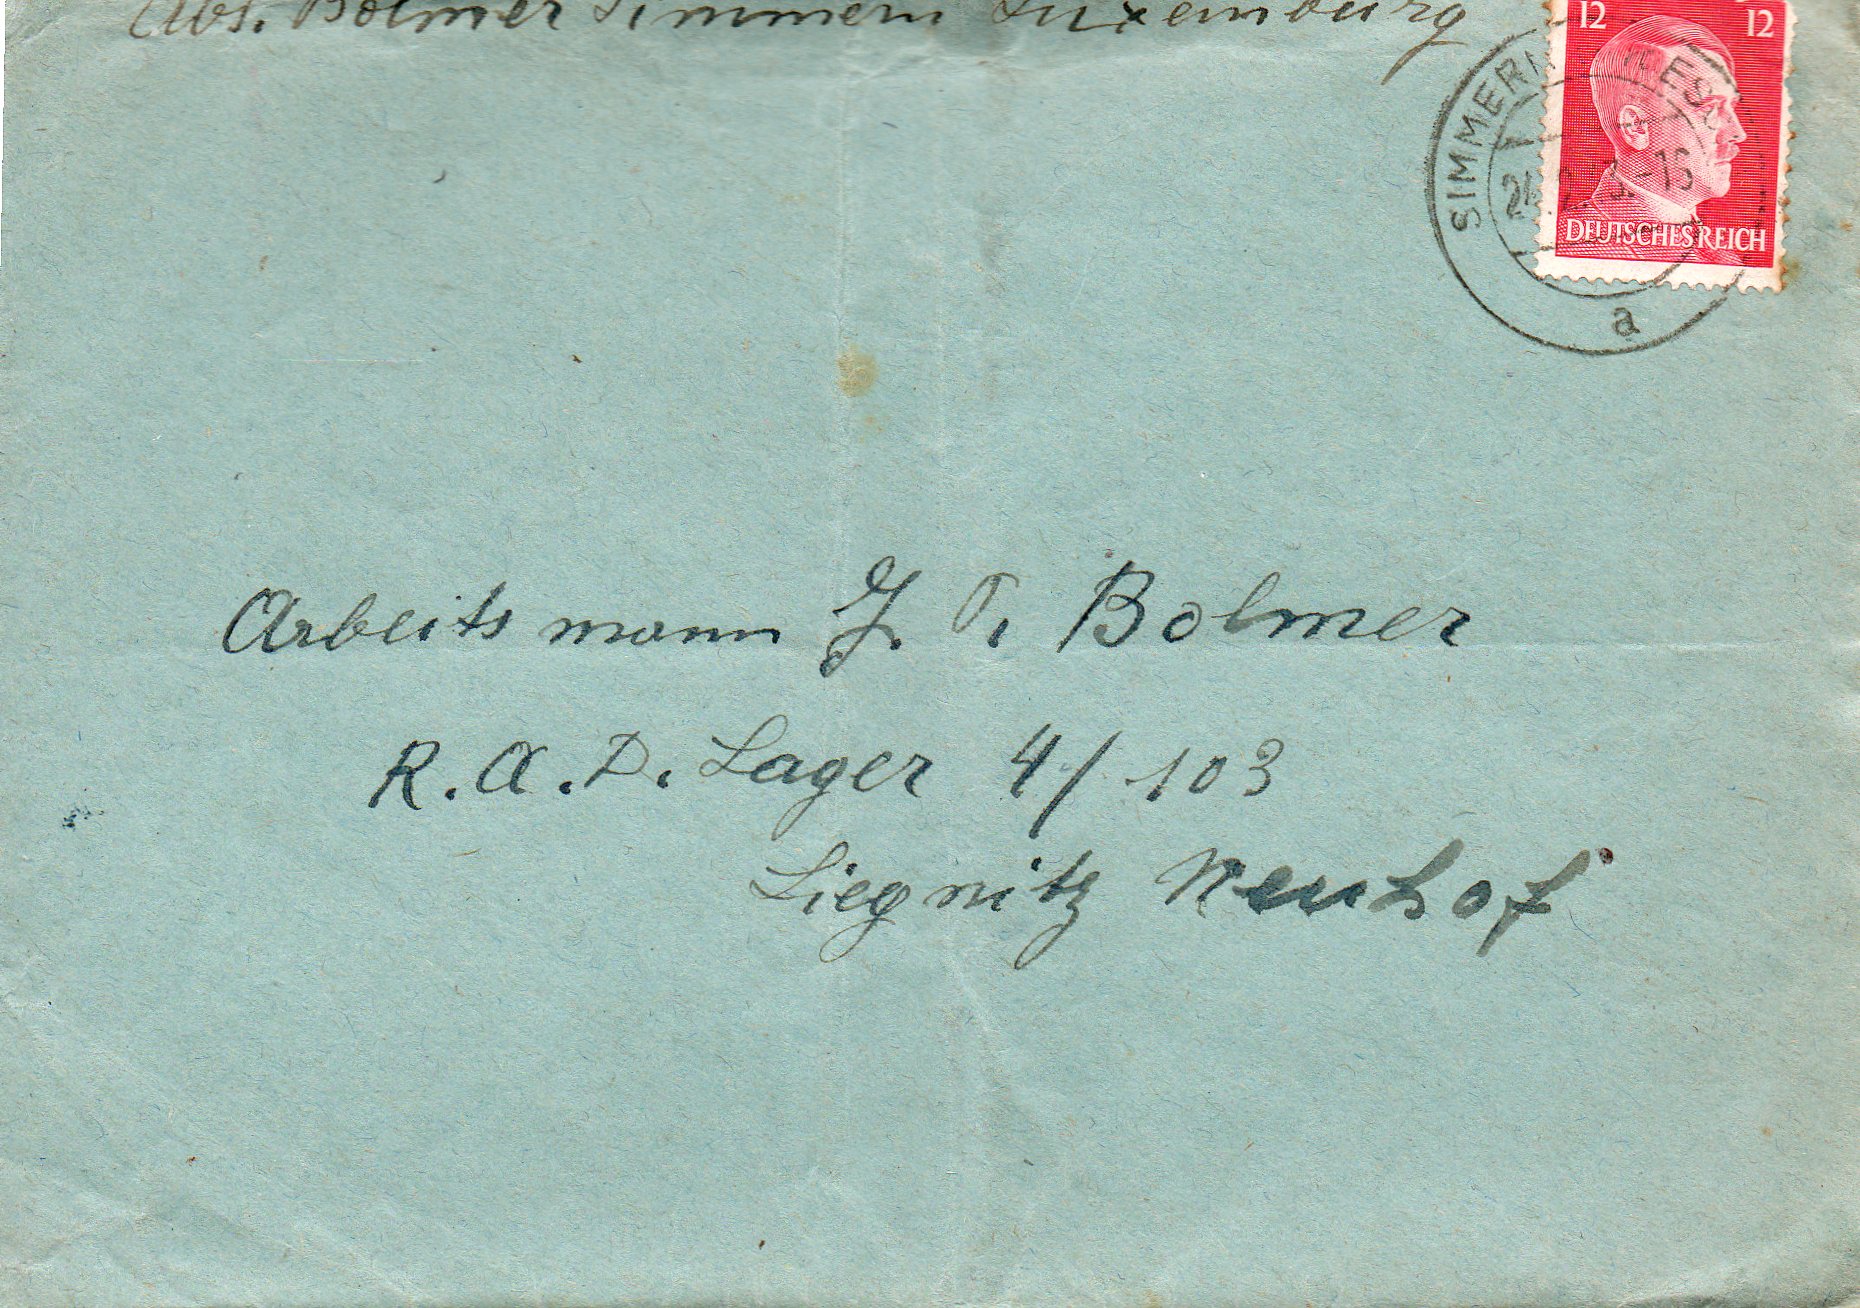 Abs. Bolmer Simmern Luxemburg
12 12
SIMMERN
24. 2. -16
DEUTSCHES REICH
a
Arbeitsmann J. P. Bolmer
R.A.D. Lager 4/103
Liegnitz Neuhof